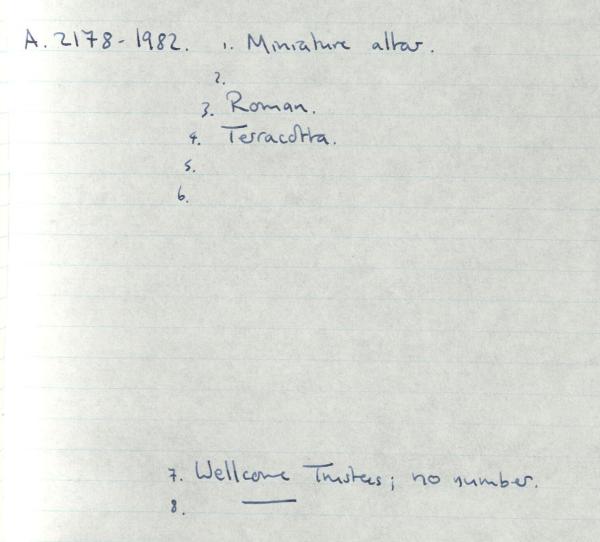 A. 2178-1982. 1. Miniature altar.
2.
3. Roman.
4. Terracotta.
5.
6.
7. Wellcome Trustees; no number.
8.